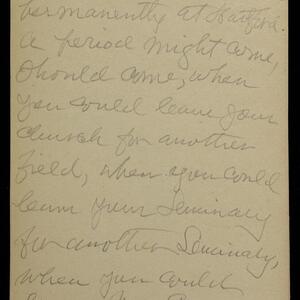 permanently at Hartford.
A period might come,
should come, when
you could leave your
church for another
field, when you could
leave your Seminary
for another Seminary,
when you could